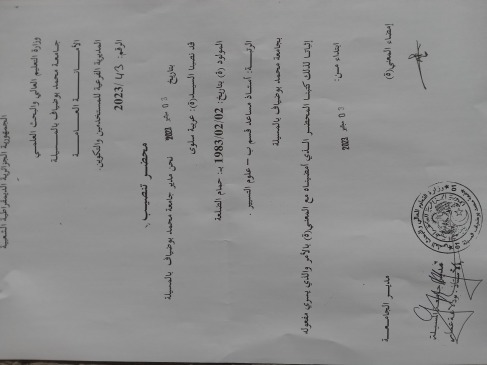 الجمهورية الجزائرية الديمقراطية الشعبية
وزارة التعليم العالي والبحث العلمي
جامعة محمد بوضياف بالمسيلة
الأمانة العامة
المديرية الفرعية للمستخدمين والتكوين
الرقم: 2023/43
محضر تنصيب
بتاريخ 03 2023 نحن مدير جامعة محمد بوضياف بالمسيلة
قد نصبنا السيد(ة): عريبة سلوى
المولود (ة) بتاريخ: 1983/02/02 بـ: حمام الضلعة
الرتبة: أستاذ مساعد قسم ب - علوم التسيير.
بجامعة محمد بوضياف بالمسيلة
إثباتا لذلك كتبنا المحضر الذي أمضيناه مع المعني(ة) بالأمر والذي يسري مفعوله
ابتداء من: 03 2023
إمضاء المعني(ة)
مدير الجامعة